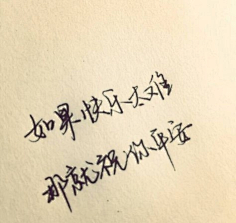 如果快乐太难
那就祝你平安